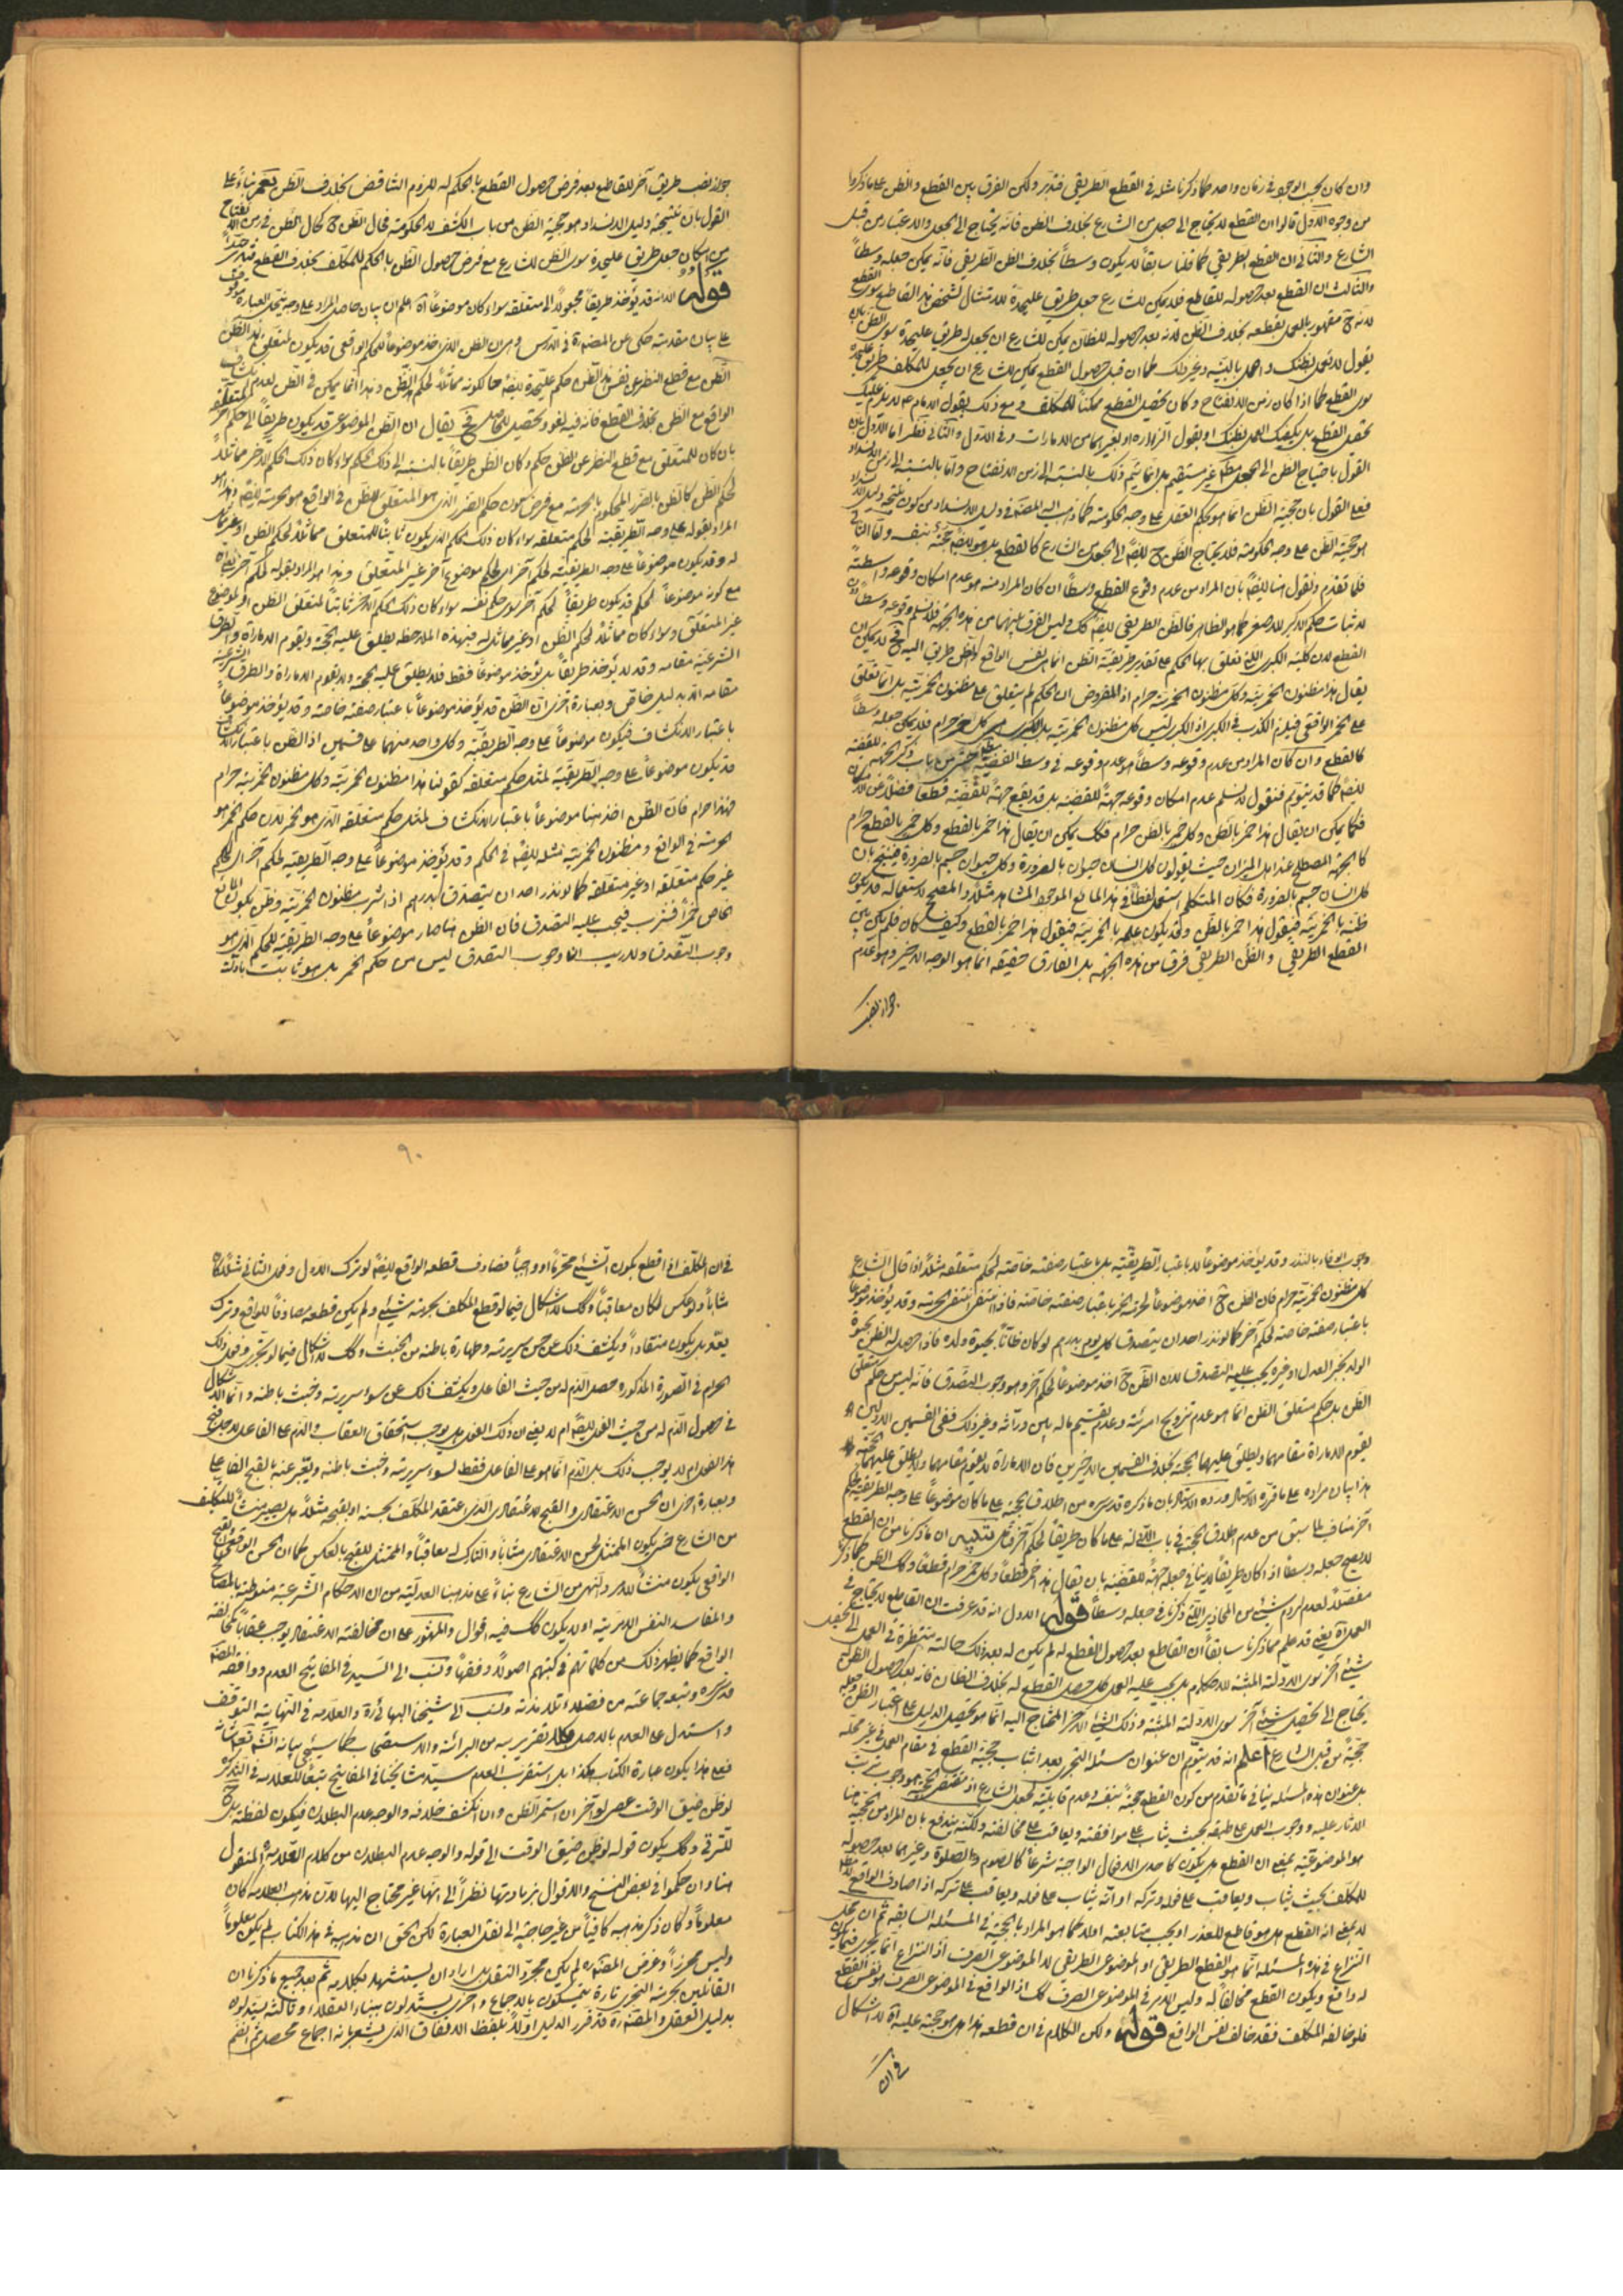 وان كان بحسب الوجود فى زمان واحد كما ذكرنا مثله فى القطع الطريقى فتدبّر ولكن الفرق بين القطع والظن على ما ذكروا
من وجوه الاوّل قالوا ان القطع لا يحتاج الى جعل من الشارع بخلاف الظن فانّه يحتاج الى الجعل والاعتبار من قبل
الشارع والثانى ان القطع الطريقى كما قلنا سابقاً لا يكون وسطاً بخلاف الظن الطريقى فانّه يمكن جعله وسطاً
والثالث ان القطع بعد حصوله للقاطع فلا يمكن للشارع جعل طريق عليحدة للامتثال لشخص هذا القاطع سوى القطع
لانه ح مقهور بالعمل بقطعه بخلاف الظن لانه بعد حصوله للظان يمكن للشارع ان يجعل له طريق عليحدة سوى الظن بان
يقول لا تعمل بظنك واعمل بالبيّنه وغير ذلك كما ان قبل حصول القطع يمكن للشارع ان يجعل للمكلف طريق عليحدة
سوى القطع كما اذا كان زمن الانفتاح وكان تحصيل القطع ممكناً للمكلف ومع ذلك يقول الامام ع لا يلزم عليك
تحصيل القطع بل يكفيك العمل بظنك او بقول الزرارة او بغيرهما من الامارات وفى الاوّل والثانى نظر امّا الاوّل فان
القول باحتياج الظن الى الجعل مط غير مستقيم بل انّما يتم ذلك بالنسبة الى زمن الانفتاح وامّا بالنسبة الى زمن الانسداد
فعلى القول بان حجيّة الظن انما هو بحكم العقل على وجه الحكومة كما ذهب اليه المصنّف فى دليل الانسداد من كون نتيجة دليل الانسداد
هو حجيّة الظن على وجه الحكومة فلا يحتاج الظن ح ايضاً الى الجعل من الشارع كالقطع بل هو ايضاً حجة بنفسه وامّا الثانى
فلما تقدم ونقول هنا ايضاً بان المراد من عدم وقوع القطع وسطاً ان كان المراد منه هو عدم امكان وقوعه واسطةً
لاثبات حكم الاكبر للاصغر كما هو الظاهر فالظن الطريقى ايضاً كك وليس الفرق بينهما من هذه الجهة فلا نسلم وقوعه وسطاً
القطع لان كلية الكبرى اللتى تعلق بها الحكم على تقدير طريقية الظن انما هى نفس الواقع والظن طريق اليه فح لا يمكن ان
يقال هذا مظنون الخمرية وكل مظنون الخمرية حرام اذ المفروض ان الحكم لم يتعلق على مظنون الخمرية بل انّما تعلق
على الخمر الواقعى فيلزم الكذب فى الكبرى اذ الكبرى ليس كل مظنون الخمرية بل الكبرى هى كل خمر حرام فلا يمكن جعله وسطاً
كالقطع وان كان المراد من عدم وقوعه وسطاً هو عدم وقوعه فى وسط القضيّة من باب ذكر الجهة للقضية
ايضاً كما قد يتوهم فنقول لا نسلم عدم امكان وقوعه جهةً للقضيّة بل قد يقع جهةً للقضيّة قطعاً فضلاً عن الامكان
فكما يمكن ان يقال هذا خمر بالظن وكل خمر بالظن حرام فكك يمكن ان يقال هذا خمر بالقطع وكل خمر بالقطع حرام
كالجهة المصطلح عند اهل الميزان حيث يقولون كل انسان حيوان بالضرورة وكل حيوان جسم بالضرورة فينتج بان
كل انسان جسم بالضرورة فكان المتكلم استعمل لفظاً فى هذا المايع الموجود المشاهد مثلاً والمصحح لاستعماله قد يكون
ظنه بالخمرية فيقول هذا خمر بالظن وقد يكون علمه بالخمرية فيقول هذا خمر بالقطع وكيف كان فلم يكن بين
القطع الطريقى والظن الطريقى فرق من هذه الجهة بل الفارق حقيقة انّما هو الوجه الاخير وهو عدم
جواز نصب
جواز نصب طريق آخر للقاطع بعد فرض حصول القطع بالحكم له للزوم التناقض بخلاف الظن نعم بناءً على
القول بان نتيجة دليل الانسداد هو حجية الظن من باب الكشف لا الحكومة فحال الظن ح كحال الظن فى زمن الانفتاح
من امكان جعل طريق عليحدة سوى الظن للشارع مع فرض حصول الظن بالحكم للمكلف بخلاف القطع فتدبّر جيّداً
قوله الا انه قد يؤخذ طريقاً مجعولاً الى متعلقه سواء كان موضوعاً اه اعلم ان بيان حاصل المراد على وجه تنحل العبارة موقوف
على بيان مقدمة حكى عن المصنف ره فى الدّرس وهى ان الظن الذى اخذ موضوعاً للحكم الواقعى قد يكون لمتعلق هذا الظن
الظن مع قطع النظر عن نفس هذا الظن حكم عليحدة ايضاً حالكونه مماثلاً لحكم الظن وهذا انما يمكن فى الظن لعدم انكشاف
الواقع مع الظن بخلاف القطع فانّه فيه لغو وتحصيل للحاصل فح يقال ان الظن الموضوعى قد يكون طريقاً الى حكم آخر لمتعلقه
بان كان للمتعلق مع قطع النظر عن الظن حكم وكان الظن طريقاً بالنسبة الى ذلك الحكم سواء كان ذلك الحكم الاخر مماثلاً
لحكم الظن كالظن بالضرر المحكوم بالحرمة مع فرض كون حكم الضرر الذى هو المتعلق للظن فى الواقع هو الحرمة ايضاً وهذا هو
المراد بقوله على وجه الطريقية لحكم متعلقه سواء كان ذلك الحكم الذى يكون ثابتاً للمتعلق مماثلاً لحكم الظن او غير مماثل
له وقد يكون موضوعاً على وجه الطريقية لحكم آخر اى لحكم موضوع آخر غير المتعلق وهذا هو المراد بقوله لحكم آخر
مع كونه موضوعاً لحكم قد يكون طريقاً لحكم آخر سوى حكم نفسه سواء كان ذلك الحكم الاخر ثابتاً لمتعلق الظن او لموضوع
غير المتعلق وسواء كان مماثلاً لحكم الظن او غير مماثل له فبهذه الملاحظة يطلق عليه الحجة ويقوم الامارة والطرق
الشرعيّة مقامه وقد لا يؤخذ طريقاً بل يؤخذ موضوعاً فقط فلا يطلق عليه الحجة ولا يقوم الامارة والطرق الشرعية
مقامه الا بدليل خاص وبعبارة اخرى ان الظن قد يؤخذ موضوعاً باعتبار صفة خاصة وقد يؤخذ موضوعاً
باعتبار الانكشاف فيكون موضوعاً على وجه الطريقية وكل واحد منهما على قسمين اذ الظن باعتبار الانكشاف
قد يكون موضوعاً على وجه الطريقية لمثل حكم متعلقه كقولنا هذا مظنون الخمرية وكل مظنون الخمرية حرام
فهذا حرام فان الظن اخذ هنا موضوعاً باعتبار الانكشاف لمثل حكم متعلقه الذى هو الخمر لان حكم الخمر هو
الحرمة فى الواقع ومظنون الخمرية مثله ايضاً فى الحكم وقد يؤخذ موضوعاً على وجه الطريقية لحكم آخر اى لحكم
غير حكم متعلقه او غير متعلقه كما لو نذر احد ان يتصدق بدرهم اذا شرب مظنون الخمرية وظن بكون المايع
الخاص خمراً فشرب فيجب عليه التصدق فان الظن هنا صار موضوعاً على وجه الطريقية للحكم الذى هو
وجوب التصدق ولا ريب ان وجوب التصدق ليس من حكم الخمر بل هو ثابت بادلّة
وجوب الوفاء بالنذر وقد يؤخذ موضوعاً لا باعتبار الطريقيّة بل باعتبار صفة خاصّة لحكم متعلقه مثلاً اذا قال الشارع
كل مظنون الخمرية حرام فان الظن ح اخذ موضوعاً لحرمة الخمر باعتبار صفة خاصة فاذا انتفى انتفى الحرمة وقد يؤخذ موضوعاً
باعتبار صفة خاصة لحكم آخر كما لو نذر احد ان يتصدق كل يوم بدرهم لو كان ظانّاً بحيوة ولده فاذا حصل له الظن بحيوة
الولد بخبر العدل او غيره يجب عليه التصدق لان الظن ح اخذ موضوعاً لحكم آخر وهو وجوب التصدق فانّه ليس حكم متعلق
الظن بل حكم متعلق الظن انما هو عدم تزويج امرئته وعدم تقسيم ماله بين ورّاثه وغير ذلك ففى القسمين الاولين
يقوم الامارة مقامهما ويطلق عليهما الحجة بخلاف القسمين الاخيرين فان الامارة لا يقوم مقامهما ولا يطلق عليهما الحجّة
هذا بيان مراده على ما قرّره الاستاد ورده الاستاد بان ما ذكره قدس سره من اطلاق الحجة على ما كان موضوعاً على وجه الطريقية لحكم
آخر مناف لما سبق من عدم اطلاق الحجة فى باب الادلة على ما كان طريقاً لحكم آخر فتامل تنبيه ان ما ذكرنا من ان القطع
لا يصح جعله وسطاً اذا كان طريقاً لا ينافى جعله جهةً للقضيّة بان يقال هذا خمر قطعاً وكل خمر حرام قطعاً وكك الظن كما ذكر
مفصّلاً لعدم لزوم شىء من المحاذير اللتى ذكرنا فى جعله وسطاً قوله الاول انه قد عرفت ان القاطع لا يحتاج فى
العمل اه يعنى قد علم مما ذكرنا سابقاً ان القاطع بعد حصول القطع له لم يكن له بعد ذلك حالة منتظرة فى العمل الى تحصيل
شىء آخر سوى الادلّة المثبتة للاحكام بل يجب عليه العمل كلما حصل القطع له بخلاف الظان فانه بعد حصول الظن له
يحتاج الى تحصيل شىء آخر سوى الادلّة المثبتة وذلك الشىء الاخر المحتاج اليه انّما هو تحصيل الدليل على اعتبار الظن وجعله
حجيّة من قبل الشارع اعلم انه قد يتوهم ان عنوان مسئلة التجرى بعد اثبات حجية القطع فى مقام العمل فى غير محله
بل عنوان هذه المسئلة ينافى ما تقدم من كون القطع حجةً بنفسه وعدم قابليّته لجعل الشارع اذ مقتضى الحجية هو وجوب ترتيب
الاثار عليه ووجوب العمل على طبقه بحيث يثاب على موافقته ويعاقب على مخالفته ولكنّه يندفع بان المراد من الحجيّة هنا
هو الموضوعيّة بمعنى ان القطع هل يكون كاحدى الافعال الواجبة شرعاً كالصوم والصلوة وغيرهما بعد حصوله
للمكلف بحيث يثاب ويعاقب على فعله وتركه او انّه يثاب على فعله ويعاقب على تركه اذا صادف الواقع فقط
لا بمعنى انه القطع هل هو قاطع للعذر او يجب متابعته اولا كما هو المراد بالحجيّة فى المسئلة السابقة ثم ان محل
النزاع فى هذه المسئلة انّما هو القطع الطريقى او الموضوعى الطريقى لا الموضوعى الصرف اذ النزاع انّما يجرى فيما يكون
له واقع ويكون القطع مخالفاً له وليس الامر فى الموضوعى الصرف كك اذ الواقع فى الموضوعى الصرف هو نفس القطع
فلو خالفه المكلف فقد خالف نفس الواقع قوله ولكن الكلام فى ان قطعه هذا هل هو حجة عليه اه لا اشكال
فى ان
٩٠
فى ان المكلّف اذا قطع بكون شىء محرّماً او واجباً فصادف قطعه الواقع ايضاً لو ترك الاول وفعل الثانى مثلاً كان
مثاباً ولو عكس لكان معاقباً وكك لا اشكال فيما لو قطع المكلف بحرمة شىء ولم يكن قطعه مصادفاً للواقع وترك
يعدّ بل يكون منقاداً ويكشف ذلك عن حسن سريرته وطهارة باطنه من الخبث وكك لا اشكال فيما لو تجرى وفعل ذلك
الحرام فى الصورة المذكورة وحصل الذم له من حيث الفاعل ويكشف ذلك عن سوء سريرته وخبث باطنه وانّما الاشكال
فى حصول الذم له من حيث الفعل ايضاً ام لا يعنى ان ذلك الفعل هل يوجب استحقاق العقاب والذم على الفاعل لاجل قبح
هذا الفعل ام لا يوجب ذلك بل الذم انّما هو على الفاعل فقط لسوء سريرته وخبث باطنه ويعبّر عنه بالقبح الفاعلى
وبعبارة اخرى ان الحسن الاعتقادى والقبح الاعتقادى الذى اعتقد المكلف بحسنه او بقبحه مثلاً هل يصير منشأ للتكليف
من الشارع حتى يكون الممتثل لحسن الاعتقادى مثاباً والتارك له معاقباً والممتثل للقبح بالعكس كما ان الحسن الواقعى والقبح
الواقعى يكون منشأً للامر والنهى من الشارع بناءً على مذهبنا العدليّة من ان الاحكام الشرعية منوطة بالمصالح
والمفاسد النفس الامرية او لا يكون كك فيه اقوال والمشهور على ان مخالفة الاعتقاد يوجب عقاباً كمخالفة
الواقع كما يظهر ذلك من كلماتهم فى كتبهم اصولاً وفقهاً ونسب الى السيد فى المفاتيح العدم ووافقه المصنف
قدس سره وتبعه جماعة من فضلاء تلامذته ونسب الى شيخنا البهائى ره والعلامه فى النهاية التوقف
واستدل على العدم بالاصل تقريره من البرائة والاستصحاب كما سيجئ بيانه انشاء الله تعالى
فعلى هذا يكون عبارة الكتاب هكذا بل استقرب العدم سيّد مشايخنا فى المفاتيح تبعاً للعلامه فى التذكرة
لو ظن ضيق الوقت عصى لو آخر ان استمر الظن وان انكشف خلافه والوجه عدم البطلان فيكون لفظة بل ح
للترقى وكك يكون قوله لو ظن ضيق الوقت الى قوله والوجه عدم البطلان من كلام العلامه المنقول
هنا وان حكموا فى بعض النسخ والاقوال بزيادتها نظراً الى انها غير محتاج اليها لان مذهب العلامه كان
معلوماً وكان ذكر مذهبه كافياً من غير حاجة الى نقل العبارة لكن الحق ان مذهبه فى هذا الكتاب لم يكن معلوماً
وليس محرزاً وغرض المصنف ره لم يكن مجرّد النقل بل اراد ان يستشهد بكلامه ثم بعد جميع ما ذكرنا ان
القائلين بحرمة التجرى تارة يتمسكون بالاجماع واخرى يستدلون ببناء العقلاء وثالثة يستدلون
بدليل العقل والمصنف ره قد قرر الدليل اوّلاً بلفظ الاتفاق الذى يشعر بانه اجماع محصل ثم انضم